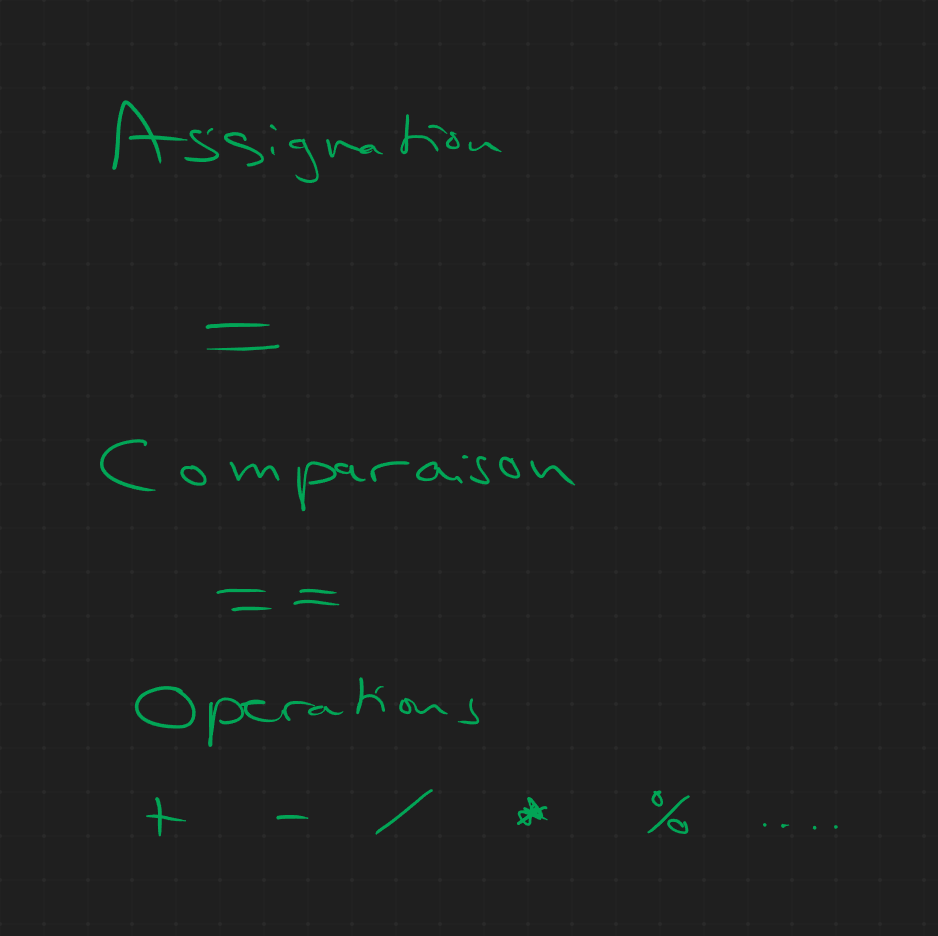 Assignation
=
Comparaison
==
Operations
+ - / * % ....